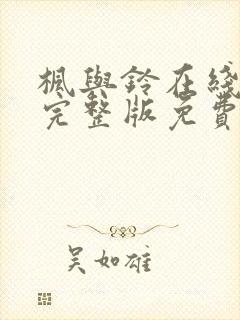 楓與鈴在綫
完整版免費
吳如雄